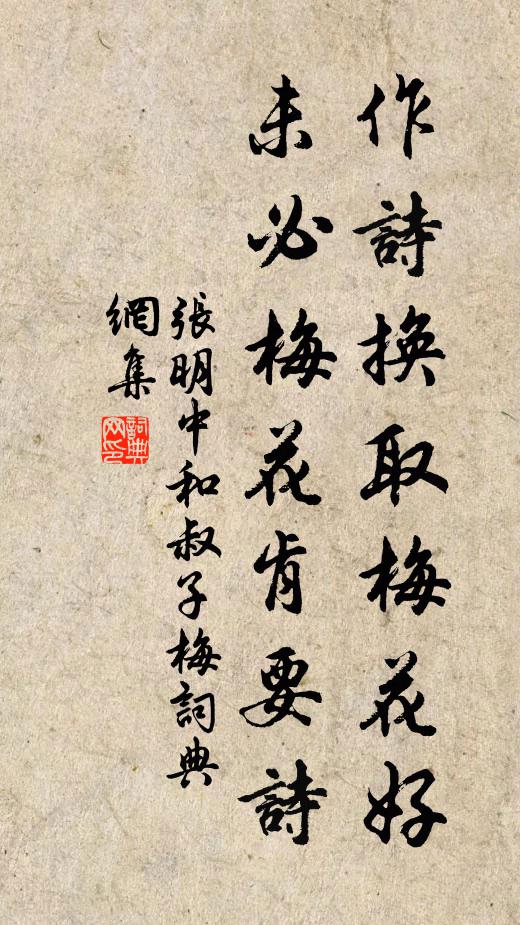 作詩換取梅花好
未必梅花肯要詩
張明中和叔子梅詞典
網集
詞典
网印